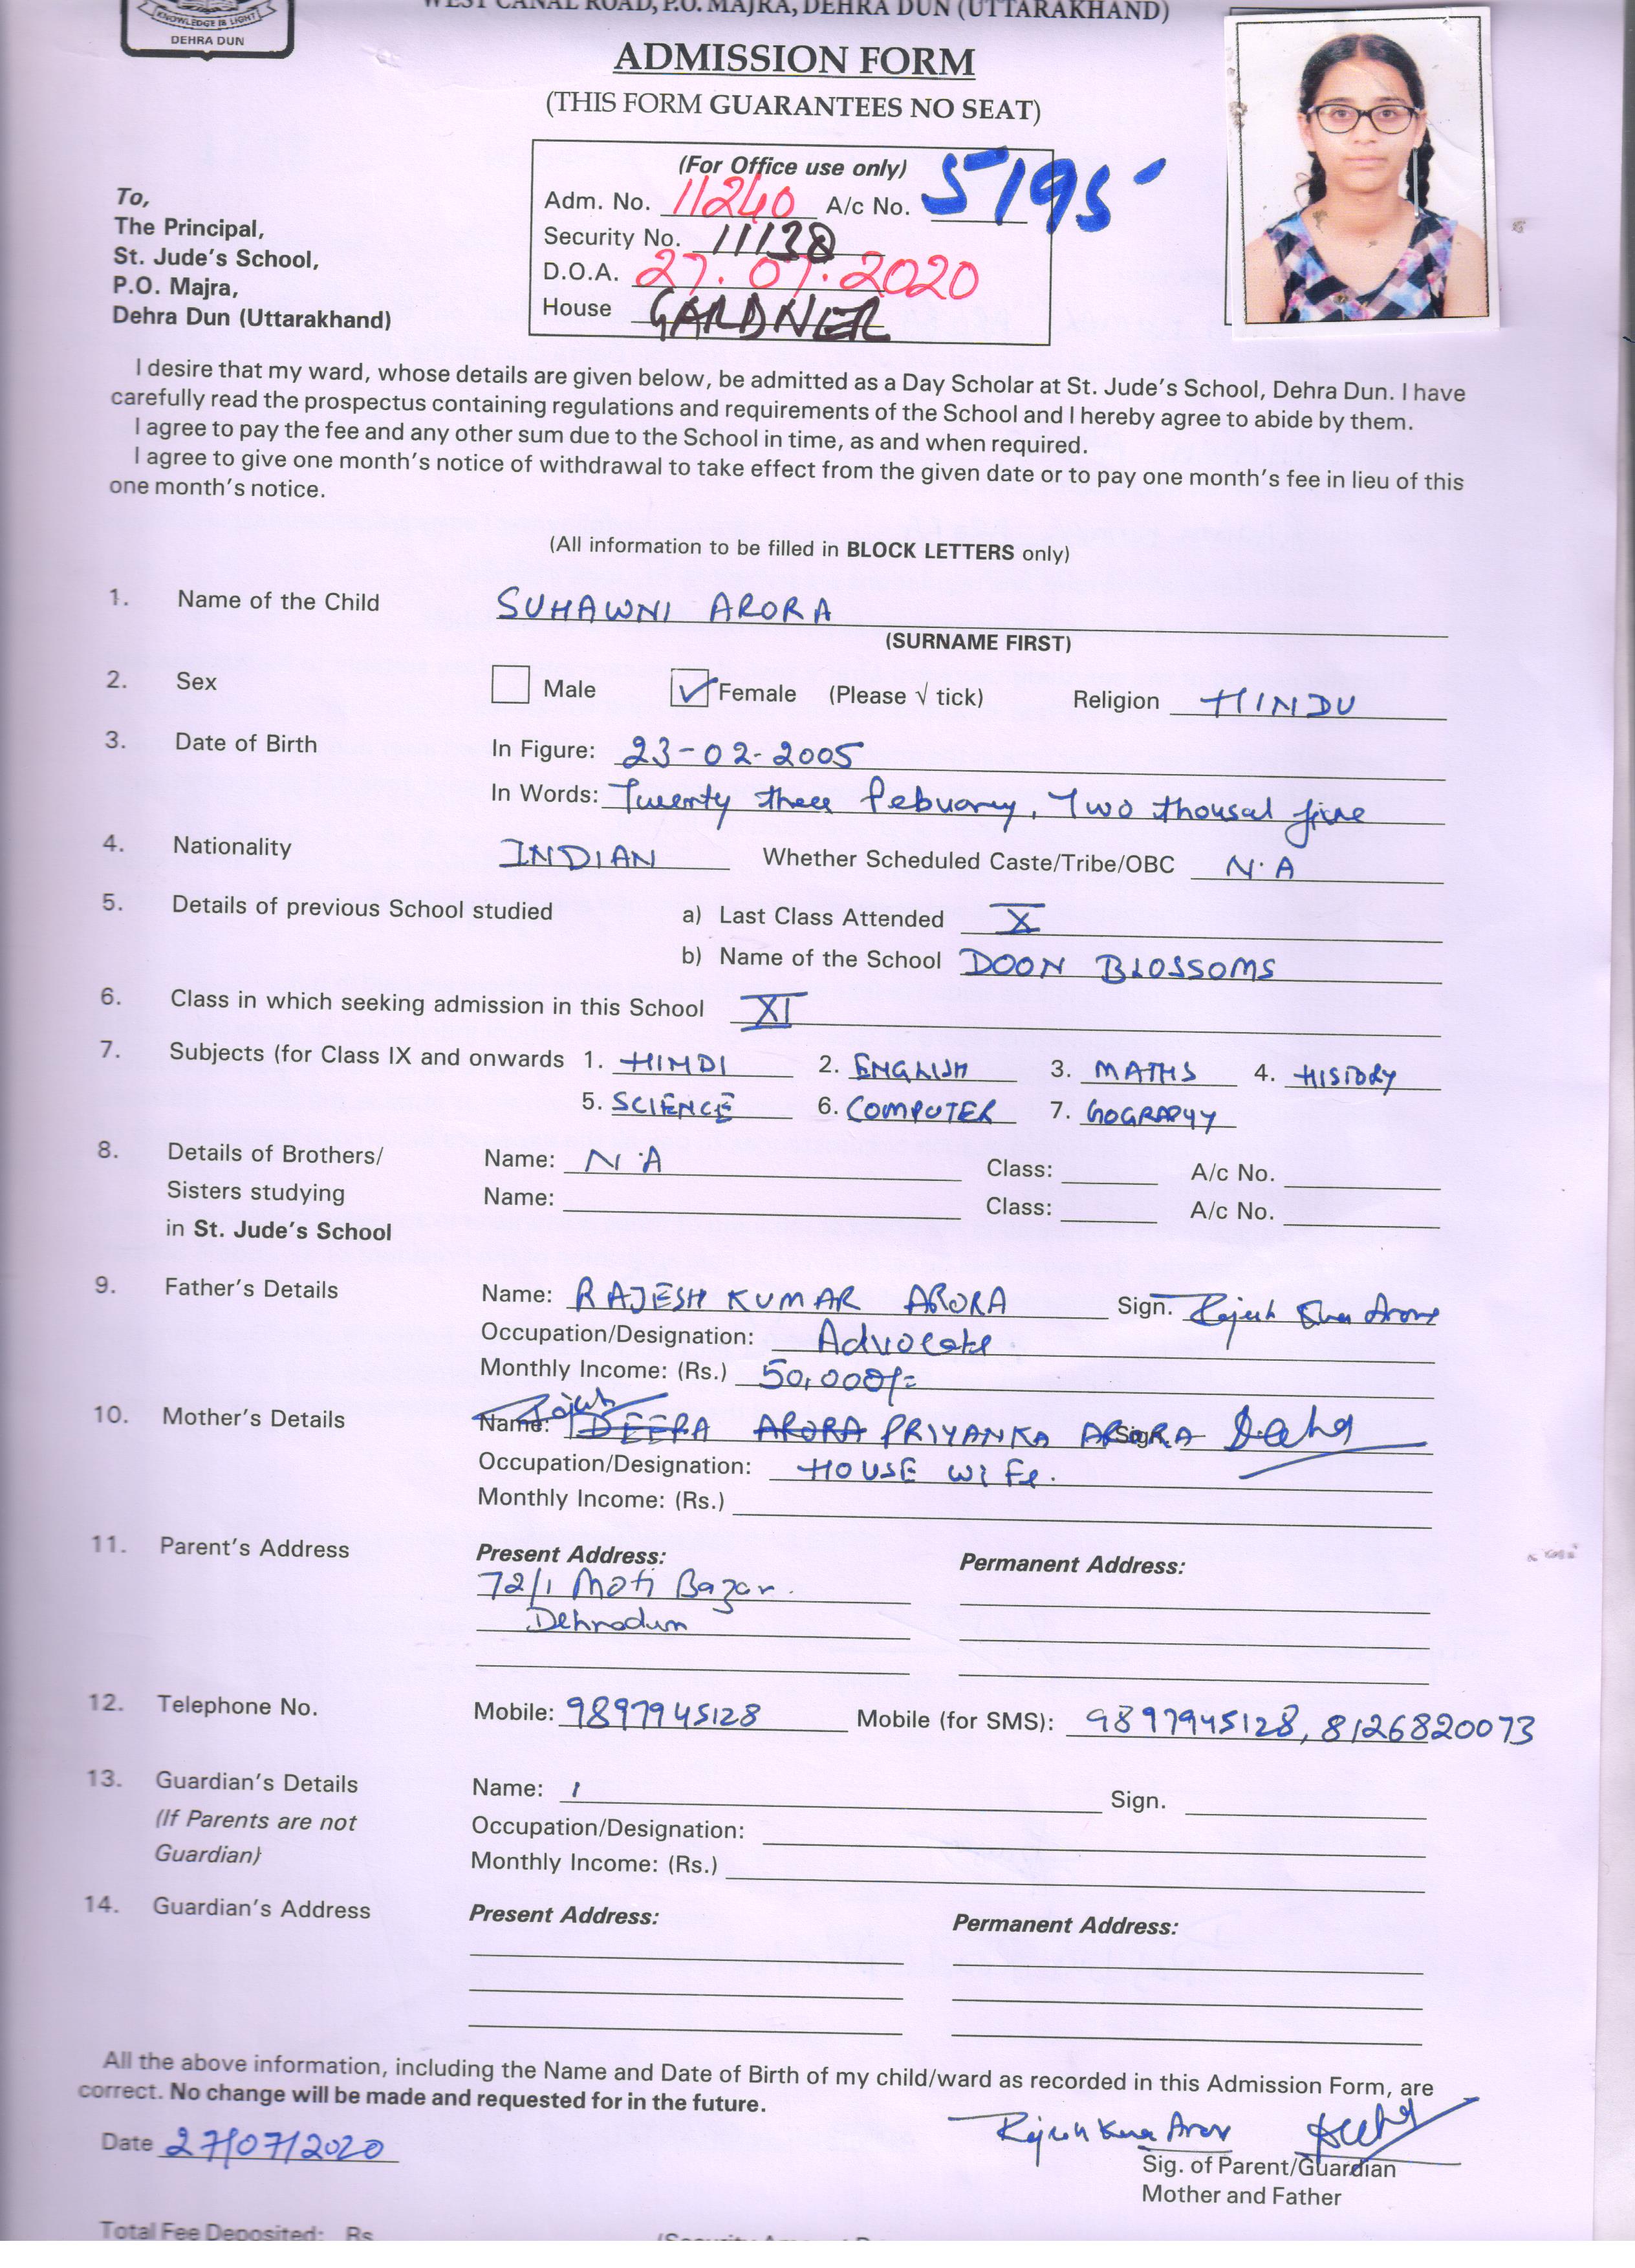 KNOWLEDGE IS LIGHT
DEHRA DUN
WEST CANAL ROAD, P.O. MAJRA, DEHRA DUN (UTTARAKHAND)
ADMISSION FORM
(THIS FORM GUARANTEES NO SEAT)
(For Office use only)
Adm. No. 11240 A/c No. 5195
Security No. 11138
D.O.A. 27.07.2020
House GARDNER
To,
The Principal,
St. Jude's School,
P.O. Majra,
Dehra Dun (Uttarakhand)
I desire that my ward, whose details are given below, be admitted as a Day Scholar at St. Jude's School, Dehra Dun. I have
carefully read the prospectus containing regulations and requirements of the School and I hereby agree to abide by them.
I agree to pay the fee and any other sum due to the School in time, as and when required.
I agree to give one month's notice of withdrawal to take effect from the given date or to pay one month's fee in lieu of this
one month's notice.
(All information to be filled in BLOCK LETTERS only)
1. Name of the Child SUHAWNI ARORA
(SURNAME FIRST)
2. Sex Male Female (Please √ tick) Religion HINDU
3. Date of Birth In Figure: 23-02-2005
In Words: Twenty three Febuary, Two thousal five
4. Nationality INDIAN Whether Scheduled Caste/Tribe/OBC N.A
5. Details of previous School studied a) Last Class Attended X
b) Name of the School DOON BLOSSOMS
6. Class in which seeking admission in this School XI
7. Subjects (for Class IX and onwards 1. HINDI 2. ENGLISH 3. MATHS 4. HISTORY
5. SCIENCE 6. COMPUTER 7. GOGRAPHY
8. Details of Brothers/ Name: N.A Class: A/c No.
Sisters studying Name: Class: A/c No.
in St. Jude's School
9. Father's Details Name: RAJESH KUMAR ARORA Sign. Rajesh Kumar Arora
Occupation/Designation: Advocate
Monthly Income: (Rs.) 50,000/=
10. Mother's Details Name: DEEPA ARORA PRIYANKA ARORA Sign.
Occupation/Designation: HOUSE WIFE.
Monthly Income: (Rs.)
11. Parent's Address Present Address: Permanent Address:
72/1 Moti Bazar.
Dehradun
12. Telephone No. Mobile: 9897945128 Mobile (for SMS): 9897945128, 8126820073
13. Guardian's Details Name: Sign.
(If Parents are not Occupation/Designation:
Guardian) Monthly Income: (Rs.)
14. Guardian's Address Present Address: Permanent Address:
All the above information, including the Name and Date of Birth of my child/ward as recorded in this Admission Form, are
correct. No change will be made and requested for in the future.
Date 27/07/2020 Rajesh Kumar Arora
Sig. of Parent/Guardian
Mother and Father
Total Fee Deposited: Rs.